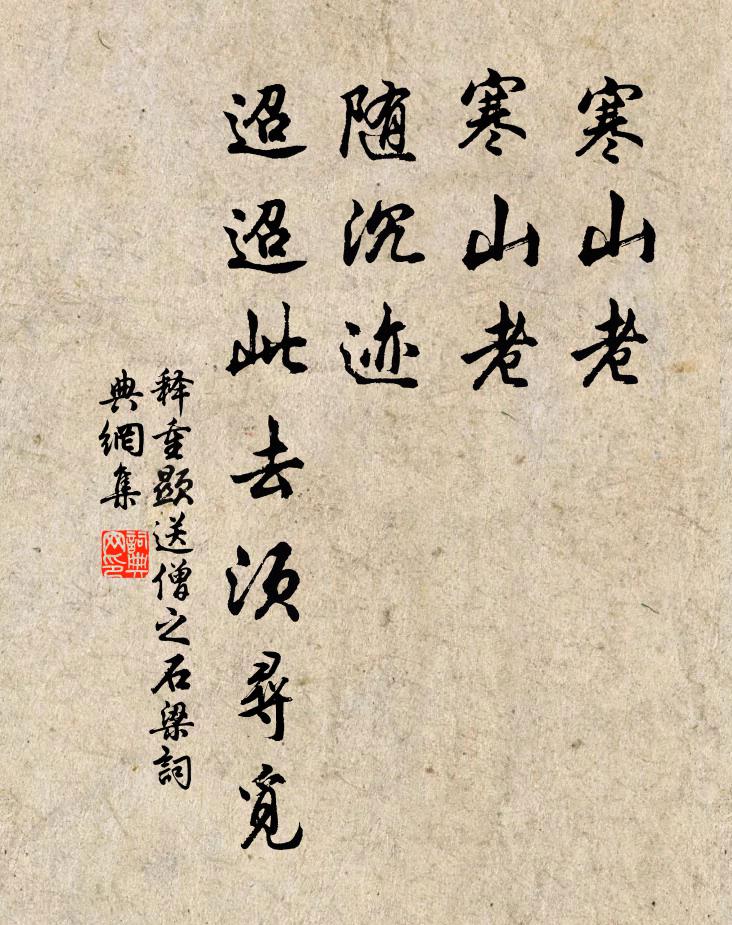 寒山老
寒山老
随沉迹
迢迢此去须寻觅
释重顯送僧之石梁詞
典網集
詞典网印